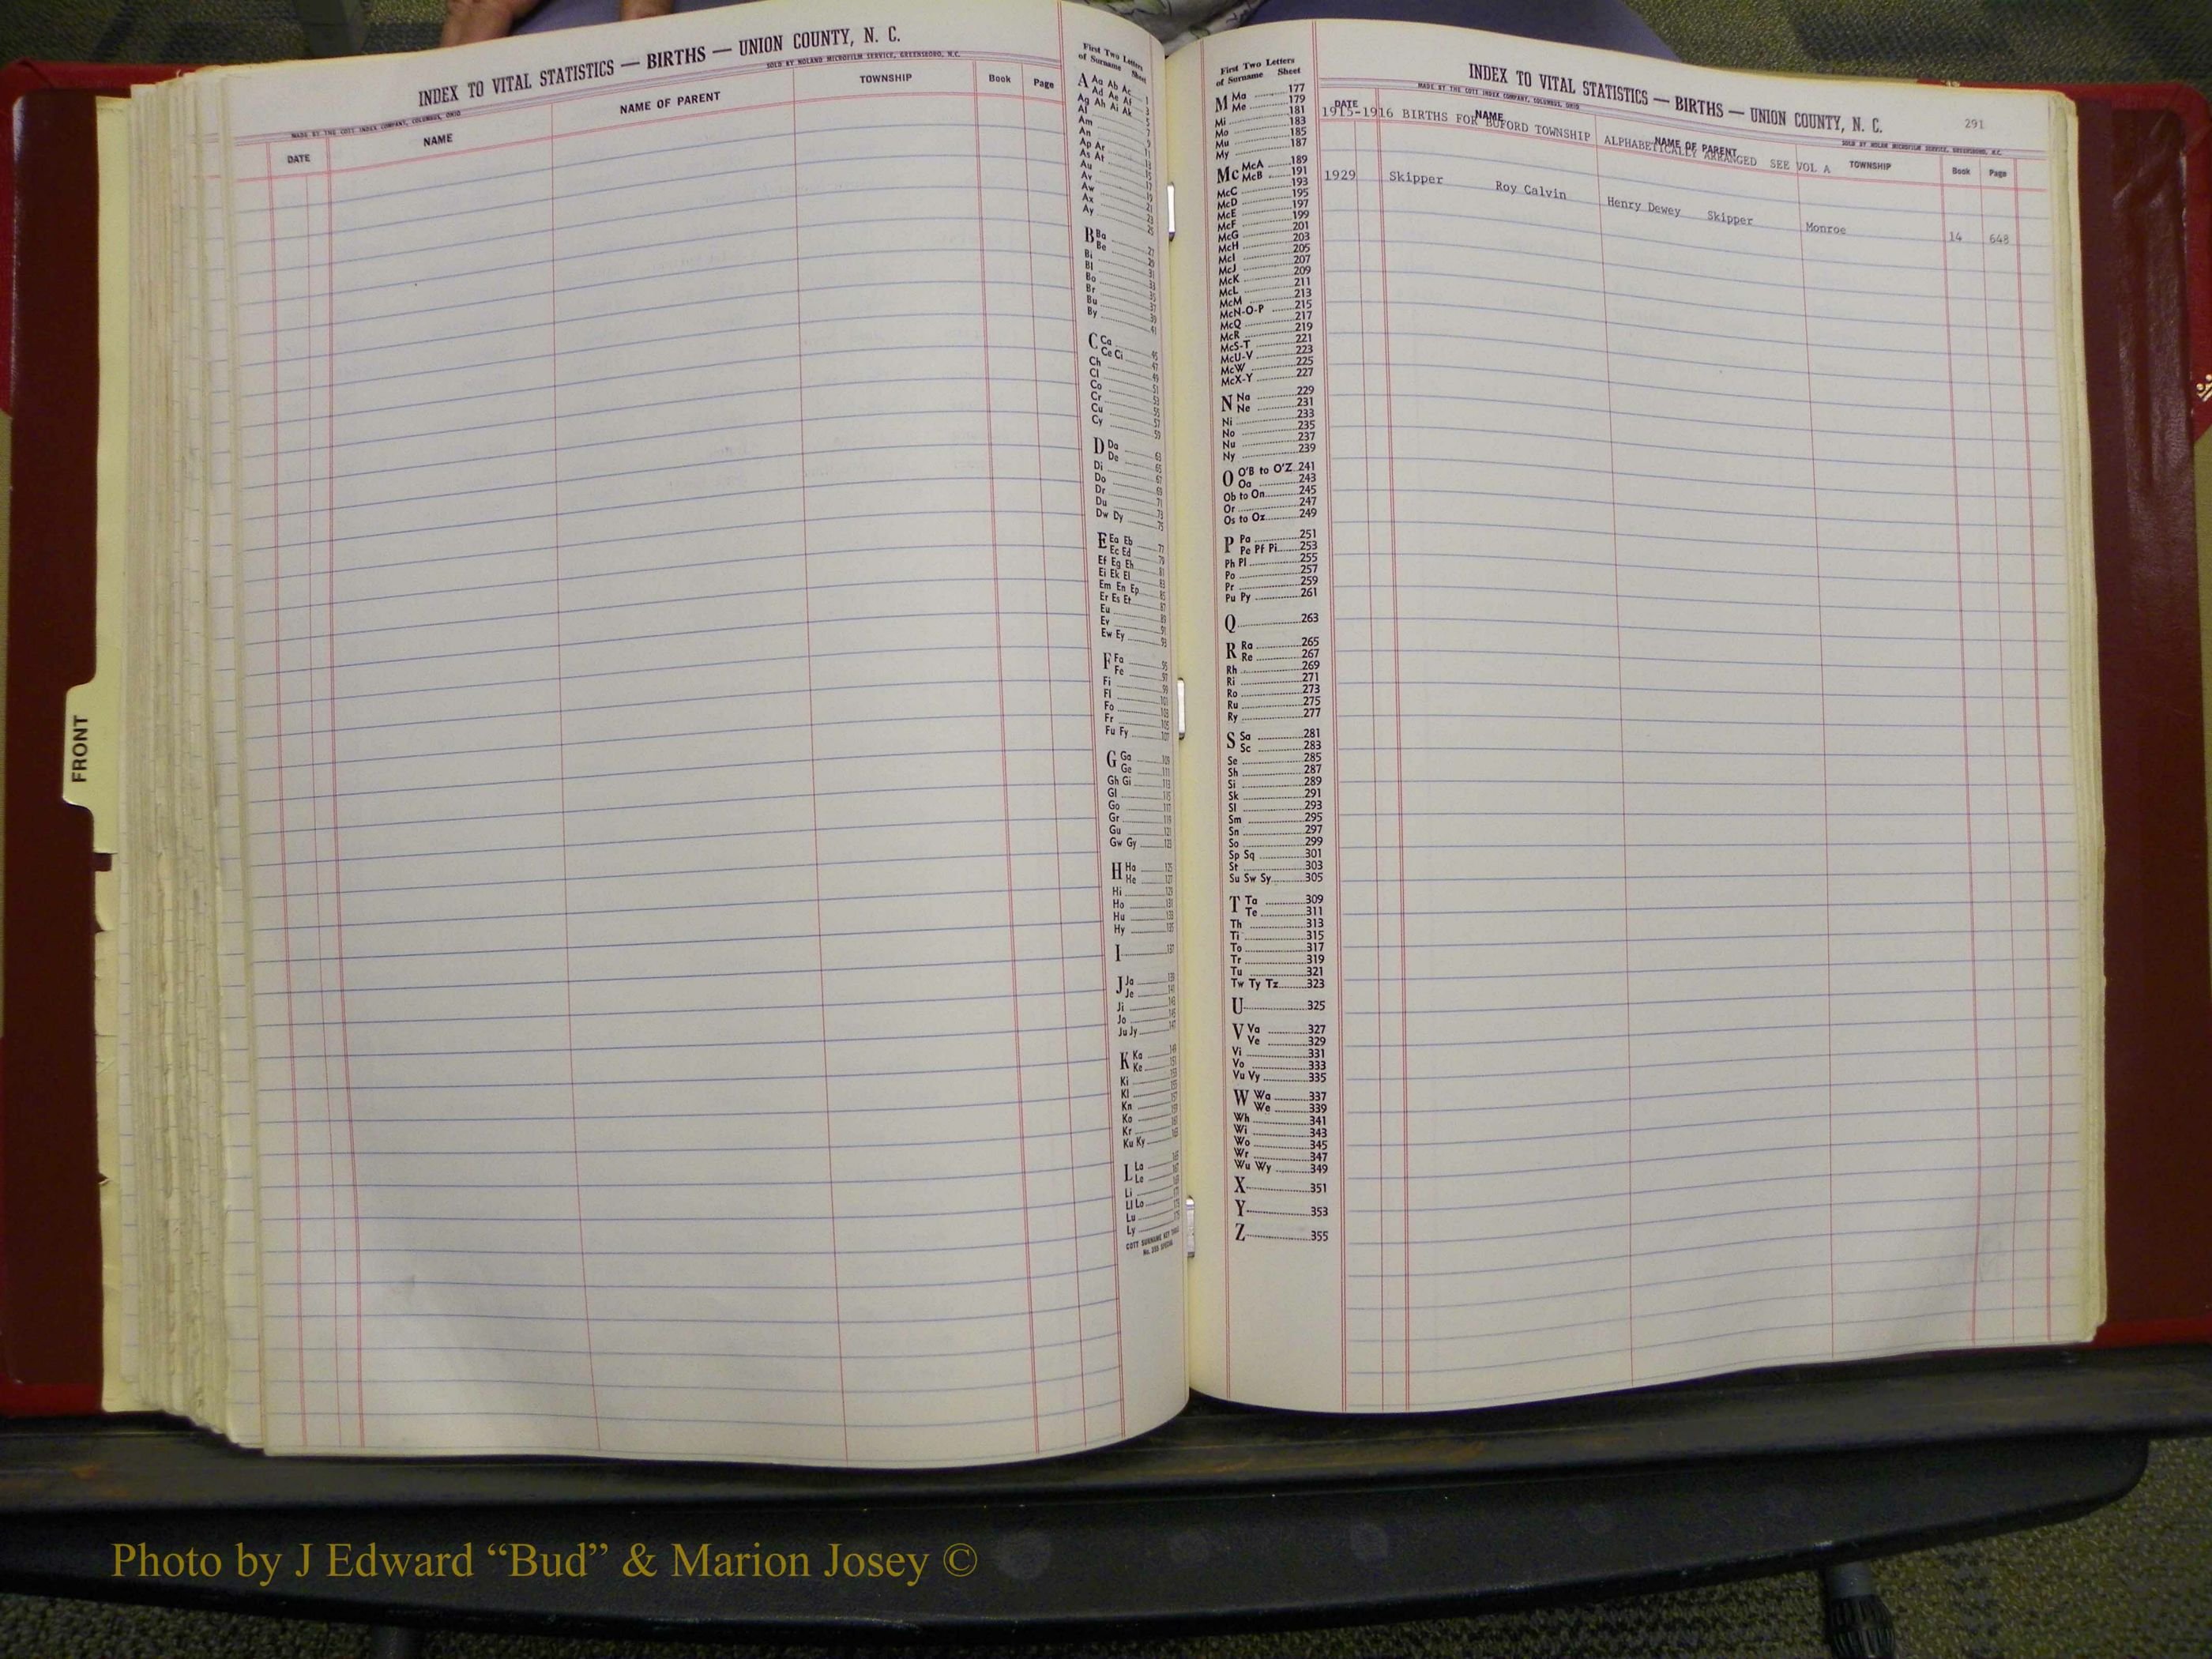 INDEX TO VITAL STATISTICS — BIRTHS — UNION COUNTY, N. C.
MADE BY THE COTT INDEX COMPANY, COLUMBUS, OHIO
SOLD BY NOLAND MICROFILM SERVICE, GREENSBORO, N.C.
DATE NAME NAME OF PARENT TOWNSHIP Book Page
First Two Letters
of Surname Sheet
A Aa Ab Ac
Ad Ae Af
Ag Ah Ai Ak
Al
Am
An
Ap Ar
As At
Au
Av
Aw
Ax
Ay
B Ba
Be
Bi
Bl
Bo
Br
Bu
By
C Ca
Ce Ci
Ch
Cl
Co
Cr
Cu
Cy
D Da
De
Di
Do
Dr
Du
Dw Dy
E Ea Eb
Ec Ed
Ef Eg Eh
Ei Ek El
Em En Ep
Er Es Et
Eu
Ev
Ew Ey
F Fa
Fe
Fi
Fl
Fo
Fr
Fu Fy
G Ga
Ge
Gh Gi
Gl
Go
Gr
Gu
Gw Gy
H Ha
He
Hi
Ho
Hu
Hy
I
J Ja
Je
Ji
Jo
Ju Jy
K Ka
Ke
Ki
Kl
Kn
Ko
Kr
Ku Ky
L La
Le
Li
Ll Lo
Lu
Ly
First Two Letters
of Surname Sheet
M Ma 177
Me 179
Mi 181
Mo 183
Mu 185
My 187
Mc McA 189
McB 191
McC 193
McD 195
McE 197
McF 199
McG 201
McH 203
McI 205
McJ 207
McK 209
McL 211
McM 213
McN-O-P 215
McQ 217
McR 219
McS-T 221
McU-V 223
McW 225
McX-Y 227
N Na 229
Ne 231
Ni 233
No 235
Nu 237
Ny 239
O O'B to O'Z 241
Oa 243
Ob to On 245
Or 247
Os to Oz 249
P Pa 251
Pe Pf Pi 253
Ph Pl 255
Po 257
Pr 259
Pu Py 261
Q 263
R Ra 265
Re 267
Rh 269
Ri 271
Ro 273
Ru 275
Ry 277
S Sa 281
Sc 283
Se 285
Sh 287
Si 289
Sk 291
Sl 293
Sm 295
Sn 297
So 299
Sp Sq 301
St 303
Su Sw Sy 305
T Ta 309
Te 311
Th 313
Ti 315
To 317
Tr 319
Tu 321
Tw Ty Tz 323
U 325
V Va 327
Ve 329
Vi 331
Vo 333
Vu Vy 335
W Wa 337
We 339
Wh 341
Wi 343
Wo 345
Wr 347
Wu Wy 349
X 351
Y 353
Z 355
INDEX TO VITAL STATISTICS — BIRTHS — UNION COUNTY, N. C. 291
MADE BY THE COTT INDEX COMPANY, COLUMBUS, OHIO
SOLD BY NOLAN MICROFILM SERVICE, GREENSBORO, N.C.
DATE NAME NAME OF PARENT TOWNSHIP Book Page
1915-1916 BIRTHS FOR BUFORD TOWNSHIP ALPHABETICALLY ARRANGED SEE VOL A
1929 Skipper Roy Calvin Henry Dewey Skipper Monroe 14 648
FRONT
Photo by J Edward “Bud” & Marion Josey ©